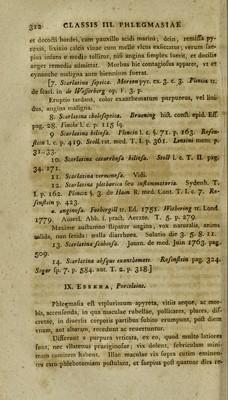 312 CLASSIS III. PHLEGMASIAE
et decocti hordei, cum pauxillo acidi marini; dein, remissa py-
rexia, lixivio calcis vivae cum melle vicus exsiccatur; verum sae-
pius infans e medio tollitur, nisi angina simplex fuerit, et docilis
aeger remedia admiserit. Morbus hic contagiosus appare, et
cynanche maligna aure hiemium fuerat.
[7. Scarlatina septica. Moroenpyr. ex. 3. c. 3. Plencis tr.
de scarl. in de Wasserberg op. F. 3. p.
Eruptio tardans, color exanthematum purpureus, vel livi-
dus, angina maligna.
8. Scarlatina cholepepticos. Brauning hist. const. epid. Eff.
pag. 28. Fincis l. c. p. 115 sq.
9. Scarlatina biliosa. Plencis l. c. §. 71. p. 163. Rosen-
stein l. c. p. 419. Stoll rat. med. T. I. p. 361. Lensini mem. p.
31-33.
10. Scarlatina catarrhosa biliosa. Stoll l. c. T. II. pag.
34. 171.
11. Scarlatina verminosa. Vidi.
12. Scarlatina plethorica seu inflammatoria. Sydenh. T.
I. p. 162. Plencis §. 3. de Haen R. med. Cont. T. I. c. 7. Ro-
senstein p. 423.
a. anginosa. Fothergill tr. Ed. 1751. Withering tr. Lond.
1779. Auserl. Abh. f. pract. Aerzte. T. 5. p. 279.
Maxime auctumno stipatur angina, vox naturalis, anima
calida, non fetida: nulla diarrhoea. Solutio die 3. 5. 8. 11.
13. Scarlatina scabiosa. Journ. de med. Juin 1763. pag.
509.
14. Scarlatina absque exanthemate. Rosenstein pag. 324.
Sagar sp. 7. p. 584. aut. T. 2. p. 318.]
IX. ESSERA, Porcelaine.
Phlegmasia est utplurimum apyreta, vitiis aeque, ac mor-
bis, accensenda, in qua maculae rubellae, pollicares, plures, dis-
cretae, in diversis corporis partibus subito erumpunt, post diem
unam, aut alteram, recedunt ac revertuntur.
Differunt a purpura urticata, ex eo, quod multo latiores
sunt, nec vibratus pruriginosae; vix dolent, febriculam mini-
mam comitem habent. Illae maculae vix supra cutim eminen-
tes cum phlebotomiam postulant, et saepius post quatuor dies re-